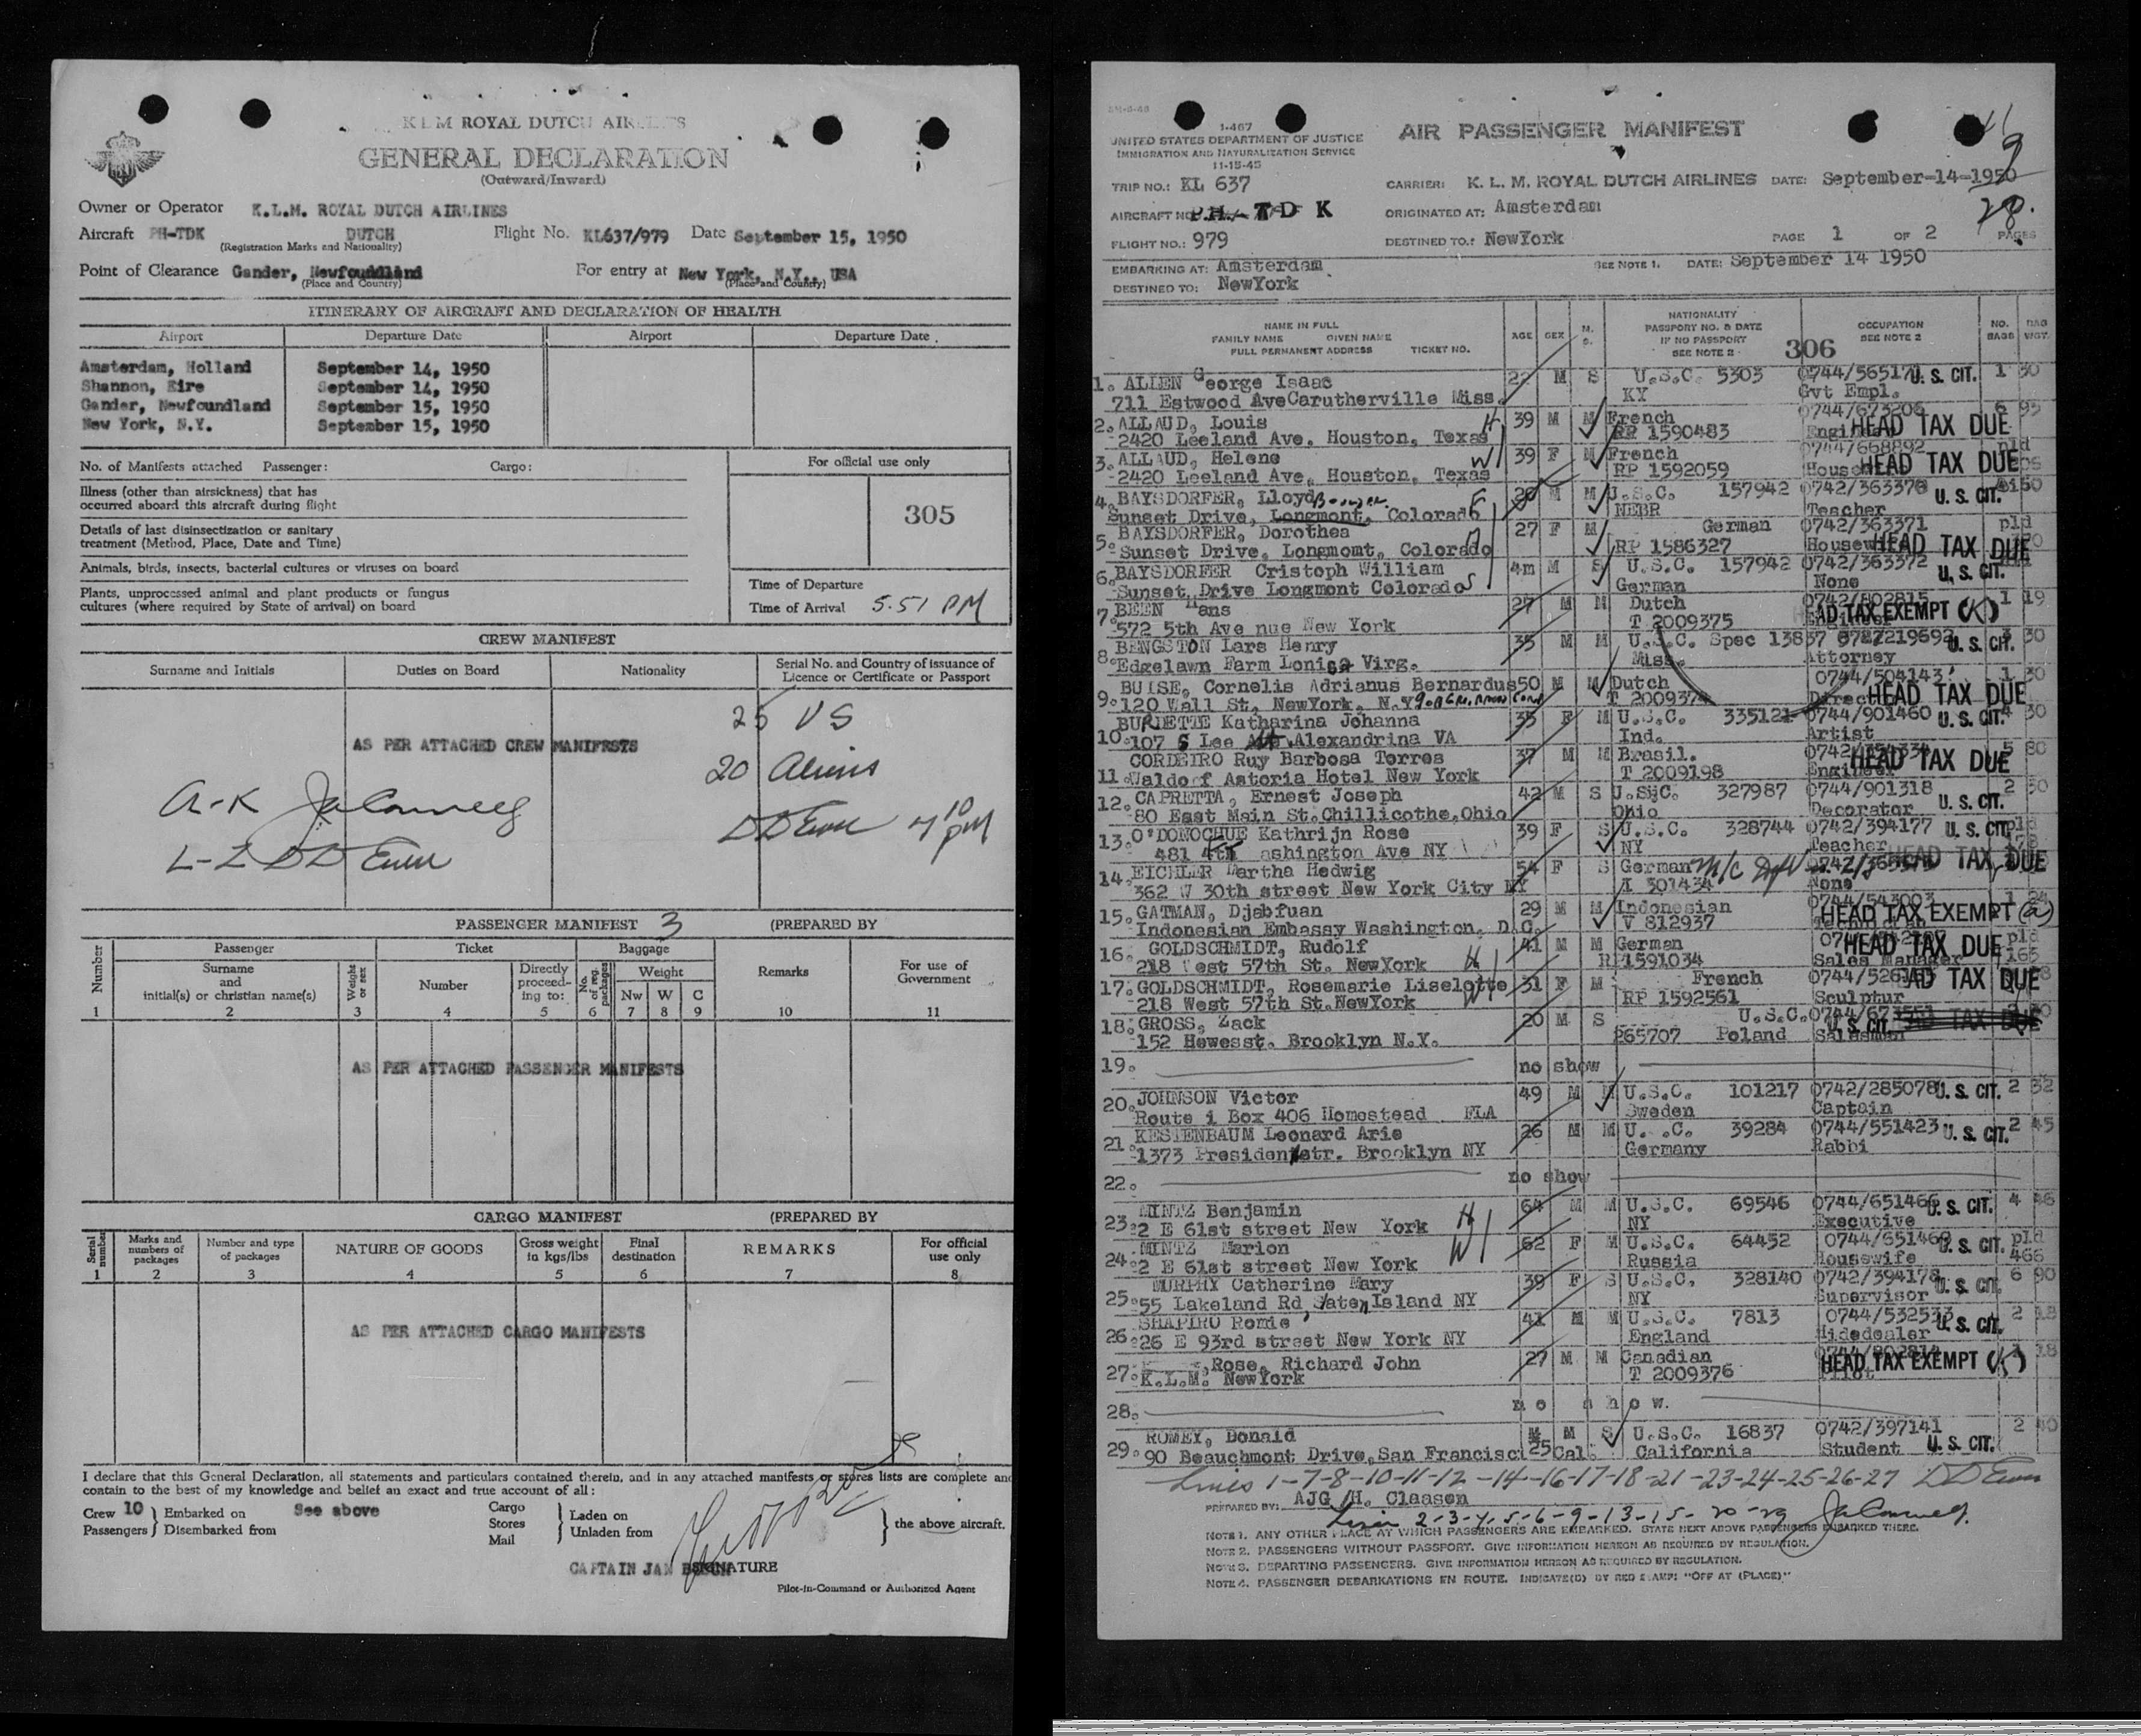 KLM ROYAL DUTCH AIRLINES
GENERAL DECLARATION
(Outward/Inward)
Owner or Operator K.L.M. ROYAL DUTCH AIRLINES
Aircraft PH-TDK DUTCH Flight No. KL637/979 Date September 15, 1950
(Registration Marks and Nationality)
Point of Clearance Gander, Newfoundland For entry at New York, N.Y., USA
(Place and Country) (Place and Country)
ITINERARY OF AIRCRAFT AND DECLARATION OF HEALTH
Airport Departure Date Airport Departure Date
Amsterdam, Holland September 14, 1950
Shannon, Eire September 14, 1950
Gander, Newfoundland September 15, 1950
New York, N.Y. September 15, 1950
No. of Manifests attached Passenger: Cargo:
For official use only
Illness (other than airsickness) that has
occurred aboard this aircraft during flight
305
Details of last disinsectization or sanitary
treatment (Method, Place, Date and Time)
Animals, birds, insects, bacterial cultures or viruses on board
Plants, unprocessed animal and plant products or fungus
cultures (where required by State of arrival) on board
Time of Departure
Time of Arrival 5.51 PM
CREW MANIFEST
Surname and Initials Duties on Board Nationality Serial No. and Country of issuance of
Licence or Certificate or Passport
25 US
AS PER ATTACHED CREW MANIFESTS
20 Aliens
A-K
L-Z
7 10 PM
PASSENGER MANIFEST 3 (PREPARED BY
Number Passenger Ticket Baggage Remarks For use of
Government
Surname
and
initial(s) or christian name(s) Weight or sex Number Directly
proceed-
ing to: No. of reg. packages Weight
Nw W C
1 2 3 4 5 6 7 8 9 10 11
AS PER ATTACHED PASSENGER MANIFESTS
CARGO MANIFEST (PREPARED BY
Serial number Marks and
numbers of
packages Number and type
of packages NATURE OF GOODS Gross weight
in kgs/lbs Final
destination REMARKS For official
use only
1 2 3 4 5 6 7 8
AS PER ATTACHED CARGO MANIFESTS
I declare that this General Declaration, all statements and particulars contained therein, and in any attached manifests or stores lists are complete and
contain to the best of my knowledge and belief an exact and true account of all:
Crew 10 Embarked on See above Cargo Laden on
Passengers Disembarked from Stores Unladen from the above aircraft.
Mail
CAPTAIN JAN SIGNATURE
Pilot-in-Command or Authorized Agent
1-467
UNITED STATES DEPARTMENT OF JUSTICE
IMMIGRATION AND NATURALIZATION SERVICE
11-15-45
AIR PASSENGER MANIFEST
TRIP NO.: KL 637 CARRIER: K. L. M. ROYAL DUTCH AIRLINES DATE: September-14-1950
AIRCRAFT NO. P.H.-TDK ORIGINATED AT: Amsterdam
FLIGHT NO.: 979 DESTINED TO.: NewYork PAGE 1 OF 2 PAGES
EMBARKING AT: Amsterdam SEE NOTE 1. DATE: September 14 1950
DESTINED TO: NewYork
NAME IN FULL
FAMILY NAME GIVEN NAME
FULL PERMANENT ADDRESS TICKET NO. AGE SEX M. S. NATIONALITY
PASSPORT NO. & DATE
IF NO PASSPORT
SEE NOTE 2 306 OCCUPATION
SEE NOTE 2 NO. BAGS BAG WGT.
1. ALLEN George Isaac M S U.S.C. 5303 0744/565171 U. S. CIT. 1 30
711 Estwood AveCarutherville Miss. KY Gvt Empl.
2. ALLAUD, Louis H 39 M M French 0744/673206 6 95
2420 Leeland Ave. Houston, Texas RP 1590483 HEAD TAX DUE
3. ALLAUD, Helene W 39 F M French 0744/668892 pld
2420 Leeland Ave, Houston, Texas RP 1592059 HEAD TAX DUE
4. BAYSDORFER, Lloyd 20 M M U.S.C. 157942 0742/363370 U. S. CIT.
Sunset Drive, Longmont, Colorado NEBR Teacher
5. BAYSDORFER, Dorothea 27 F M German 0742/363371 pld
Sunset Drive, Longmomt, Colorado RP 1586327 Housewife HEAD TAX DUE
6. BAYSDORFER Cristoph William 4m M S U.S.C. 157942 0742/363372
Sunset Drive Longmont Colorado German None U. S. CIT.
7. BEEN Hans 27 M M Dutch 0742/802815 1 19
572 5th Ave nue New York T 2009375 HEAD TAX EXEMPT (K)
8. BENGSTON Lars Henry 35 M M U.S.C. Spec 13837 U. S. CIT. 30
Edgelawn Farm Lonisa Virg. Miss. Attorney
9. BUISE, Cornelis Adrianus Bernardus 50 M M Dutch 0744/504143 1 30
120 Wall St. NewYork, N.Y. HEAD TAX DUE
10. BURIETTE Katharina Johanna 35 F M U.S.C. 335121 0744/901460 U. S. CIT. 4 30
107 S Lee Alexandrina VA Ind. Artist
11. CORDEIRO Ruy Barbosa Torres 37 M M Brasil. 5 80
Waldorf Astoria Hotel New York T 2009198 Engineer HEAD TAX DUE
12. CAPRETTA, Ernest Joseph 42 M S U.S.C. 327987 0744/901318 U. S. CIT. 2 30
80 East Main St.Chillicothe,Ohio Ohio Decorator
13. O'DONOCHUE Kathrijn Rose 39 F S U.S.C. 328744 0742/394177 U. S. CIT. pld
481 ashington Ave NY NY Teacher
14. EICHLER Martha Hedwig 54 F S German HEAD TAX DUE
362 W 30th street New York City NY I 301434 None
15. GATMAN, Djabfuan 29 M M Indonesian 0744/543003 1 24
Indonesian Embassy Washington, D.C. V 812937 HEAD TAX EXEMPT (a)
16. GOLDSCHMIDT, Rudolf 41 M M German HEAD TAX DUE pld
218 West 57th St. NewYork H RP 1591034 Sales Manager 165
17. GOLDSCHMIDT, Rosemarie Liselotte 31 F M French HEAD TAX DUE
218 West 57th St.NewYork W RP 1592561 Sculptur
18. GROSS, Zack 20 M S U.S.C. U. S. CIT.
152 Hewesst. Brooklyn N.Y. 265707 Poland Salesman
19. no show
20. JOHNSON Victor 49 M M U.S.C. 101217 0742/285078 U. S. CIT. 2 32
Route 1 Box 406 Homestead FLA Sweden Captain
21. KESTENBAUM Leonard Arie 26 M M U. .C. 39284 0744/551423 U. S. CIT. 2 45
1373 President str. Brooklyn NY Germany Rabbi
22. no show
23. MINTZ Benjamin H 64 M M U.S.C. 69546 0744/651466 U. S. CIT. 4 46
2 E 61st street New York NY Executive
24. MINTZ Marion W 62 F M U.S.C. 64452 U. S. CIT. pld
2 E 61st street New York Russia Housewife 466
25. MURPHY Catherine Mary 39 F S U.S.C. 328140 0742/394178 U. S. CIT. 6 90
55 Lakeland Rd Staten Island NY NY Supervisor
26. SHAPIRO Romie 41 M M U.S.C. 7813 0744/532533 U. S. CIT. 2 18
26 E 93rd street New York NY England Hidedealer
27. Rose, Richard John 27 M M Canadian 18
K.L.M. NewYork T 2009376 HEAD TAX EXEMPT (K)
28. no show.
29. ROMEY, Donald M M S U.S.C. 16837 0742/397141 2 40
90 Beauchmont Drive,San Francisci 25 Cal. California Student U. S. CIT.
Lines 1-7-8-10-11-12-14-16-17-18-21-23-24-25-26-27
PREPARED BY: AJG H. Claasen
Lines 2-3-4-5-6-9-13-15-20-29
NOTE 1. ANY OTHER PLACE AT WHICH PASSENGERS ARE EMBARKED. STATE NEXT ABOVE PASSENGERS EMBARKED THERE.
NOTE 2. PASSENGERS WITHOUT PASSPORT. GIVE INFORMATION HEREON AS REQUIRED BY REGULATION.
NOTE 3. DEPARTING PASSENGERS. GIVE INFORMATION HEREON AS REQUIRED BY REGULATION.
NOTE 4. PASSENGER DEBARKATIONS EN ROUTE. INDICATE(D) BY RED STAMP: "OFF AT (PLACE)"